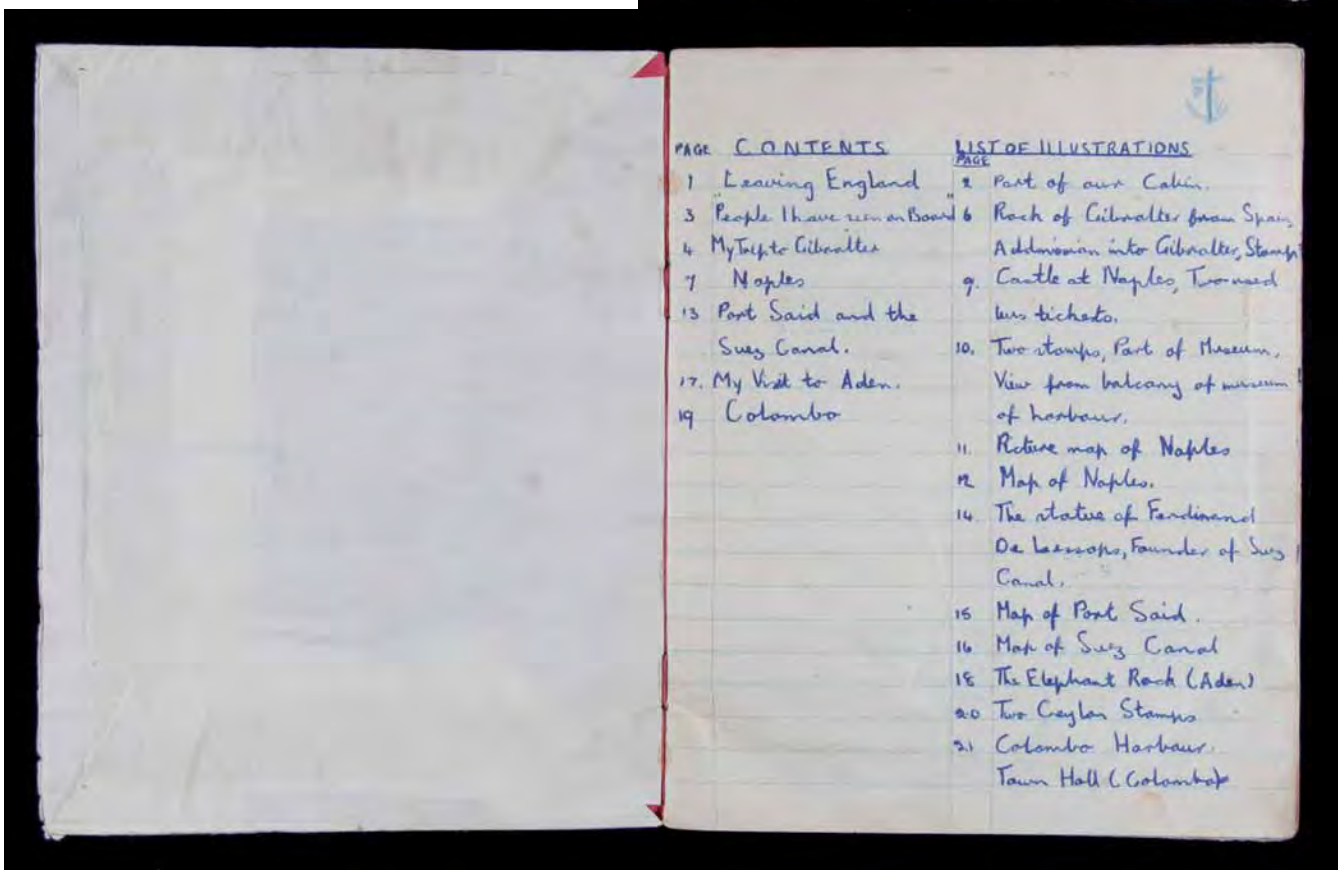 PAGE CONTENTS
1 Leaving England
3 "People I have seen on Board"
4 My Trip to Gibralter
7 Naples
13 Port Said and the
Suez Canal.
17. My Visit to Aden.
19 Colombo
LIST OF ILLUSTRATIONS
PAGE
2 Part of our Cabin.
6 Rock of Gibralter from Spain,
Addmission into Gibralter, Stamp
9. Castle at Naples, Two used
bus tickets.
10. Two stamps, Part of Museum.
View from balcany of museum
of harbour.
11. Picture map of Naples
12 Map of Naples.
14 The statue of Ferdinand
De Lessops, Founder of Suez
Canal.
15 Map of Port Said.
16 Map of Suez Canal
18 The Elephant Rock (Aden)
20 Two Ceylon Stamps
21 Colombo Harbour.
Town Hall (Colombo)